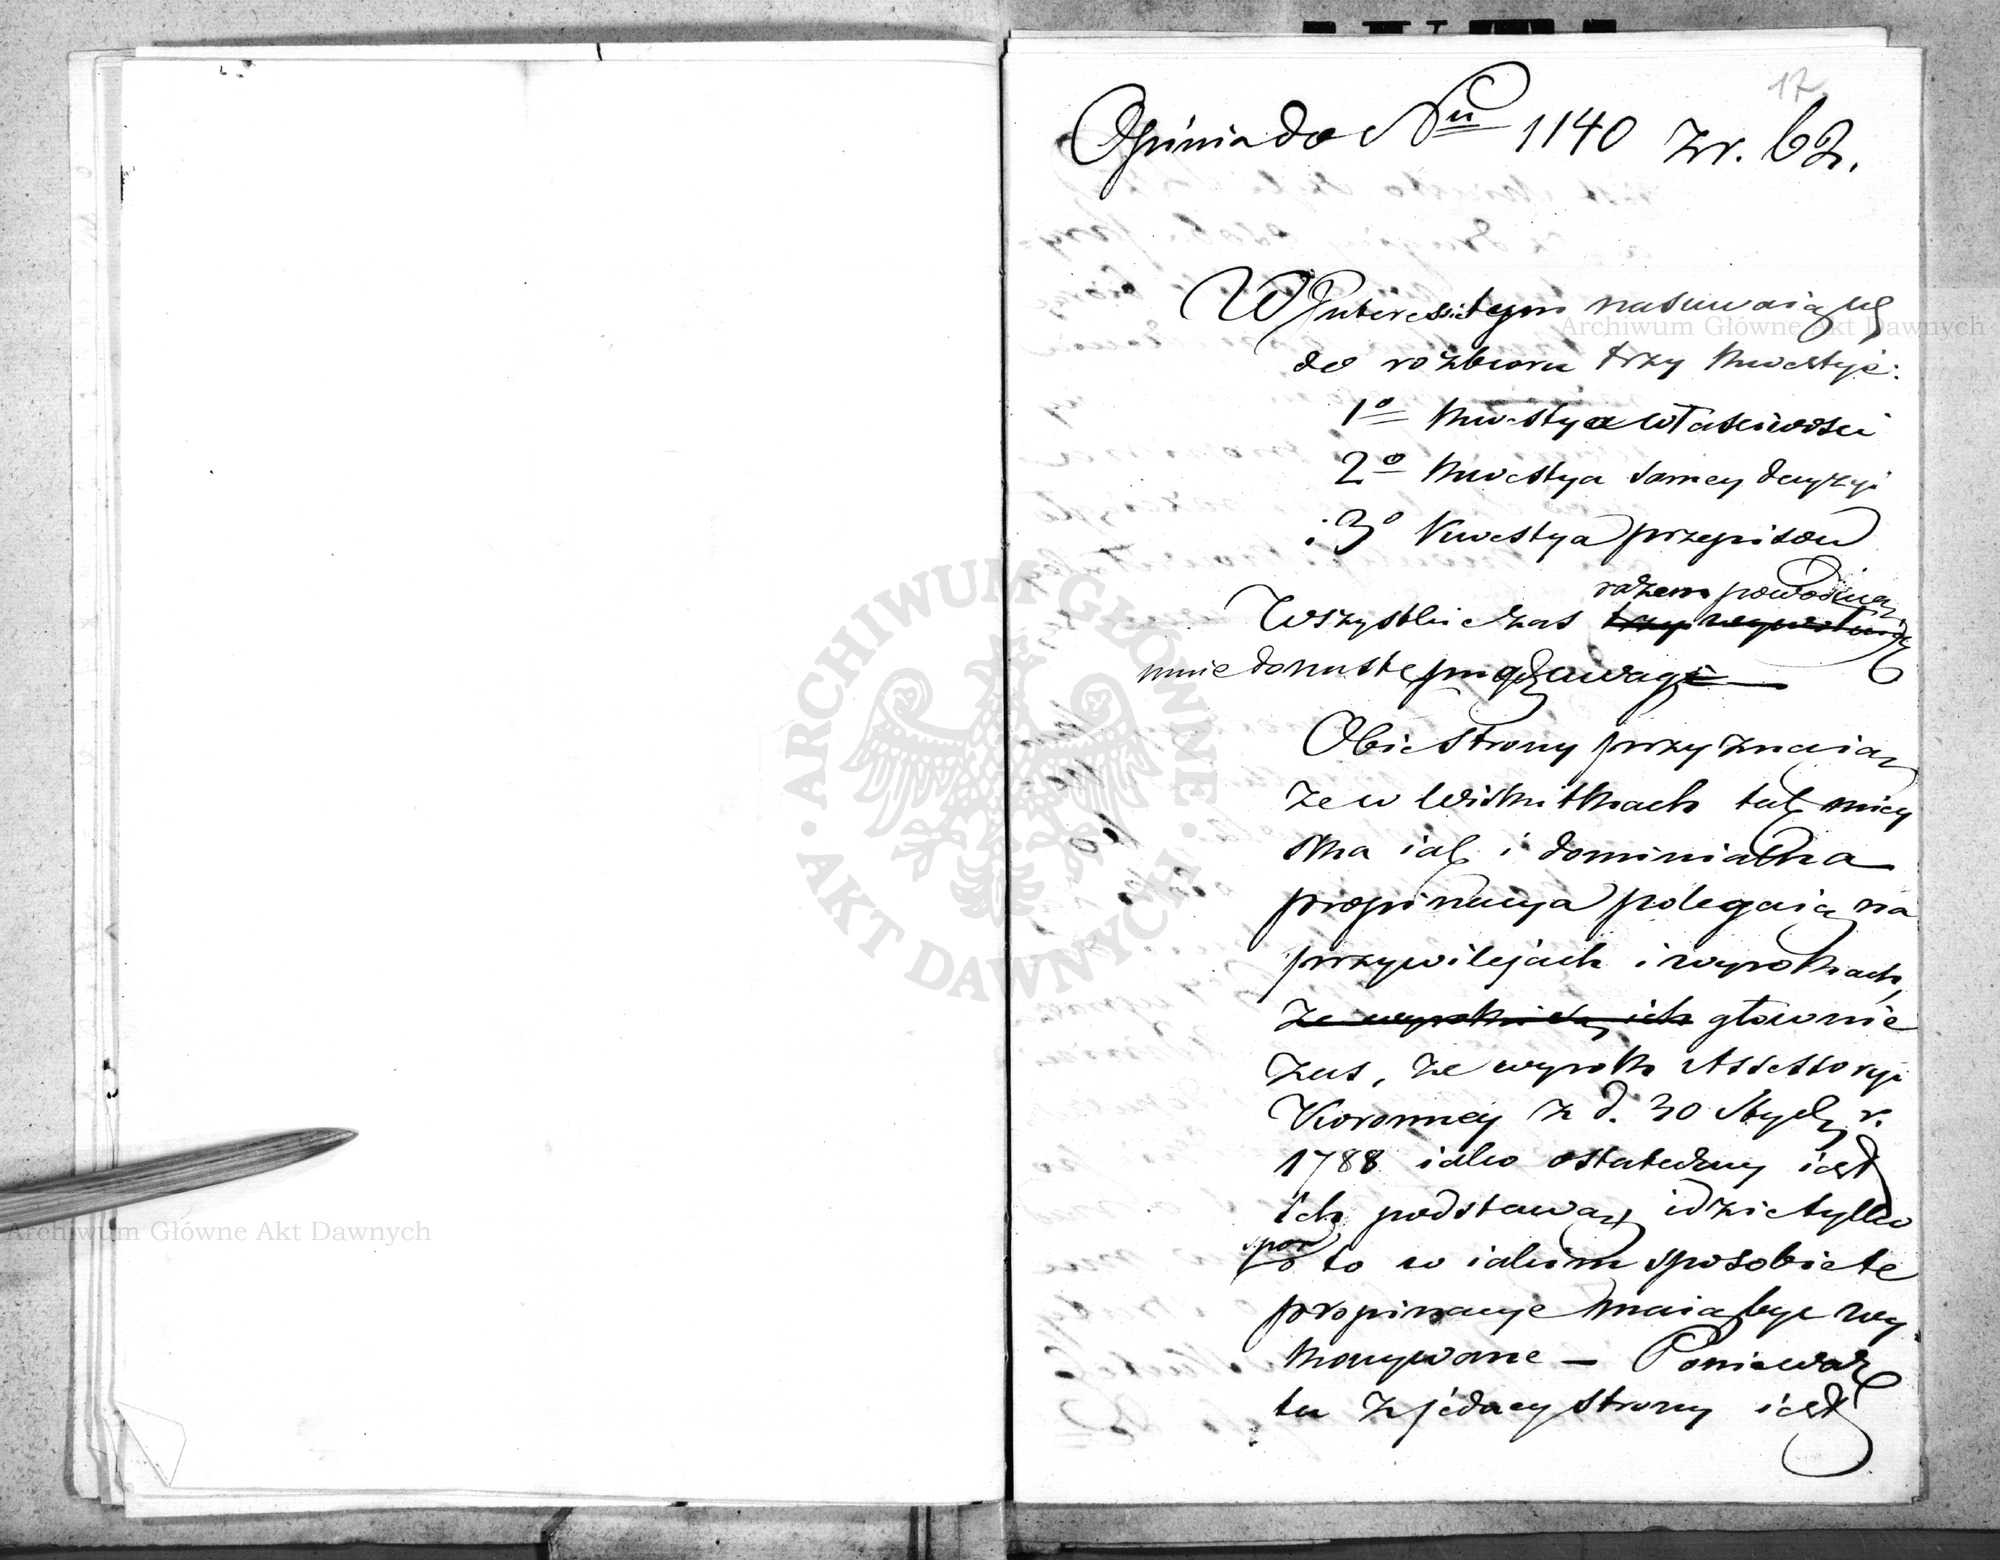 17.
Opinia do Nru 1140 z r. 62.
W Interesie tym nasuwaią się
do rozbioru trzy kwestye:
1o kwestya własciwosci
2o kwestya samey decyzyi
i 3o kwestya przepisów
razem powoduią
Wszystkie zas trzy
mnie do następuiącey uwagi
Obie strony przyznaią
że w Wiskitkach tak miey
ska iak i dominialna
propinacya polegaią na
przywilejach i wyrokach,
że wyroki są ich głownie
zas, że wyrok Assessoryi
Koronney z d. 30 Stycz r.
1788 iako ostateczny iest
ich podstawą idzie tylko
spor
o to w iakim sposobie te
propinacye maią byc wy
konywane — Poniewaz
tu z jedney strony iest
Archiwum Główne Akt Dawnych
Archiwum Główne Akt Dawnych
ARCHIWUM GŁÓWNE · AKT DAWNYCH ·